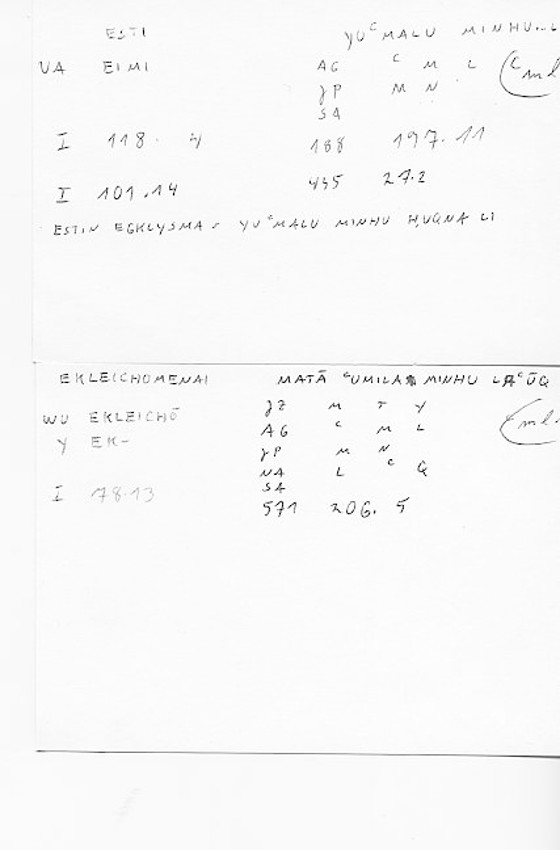 ESTI YUᶜMALU MINHU..L
UA EIMI AG ᶜ M L (ᶜml
JP M N
SA
I 118. 4 188 197. 11
I 101.14 435 27.2
ESTIN EGKLYSMA YUᶜMALU MINHU ḤUQNA LI
EKLEICHOMENAI MATĀ ᶜUMILA MINHU LAᶜŪQ
WU EKLEICHŌ JZ M T Y
Y EK- AG ᶜ M L (ᶜml
JP M N
NA L ᶜ Q
SA
I 78.13 571 206. 5